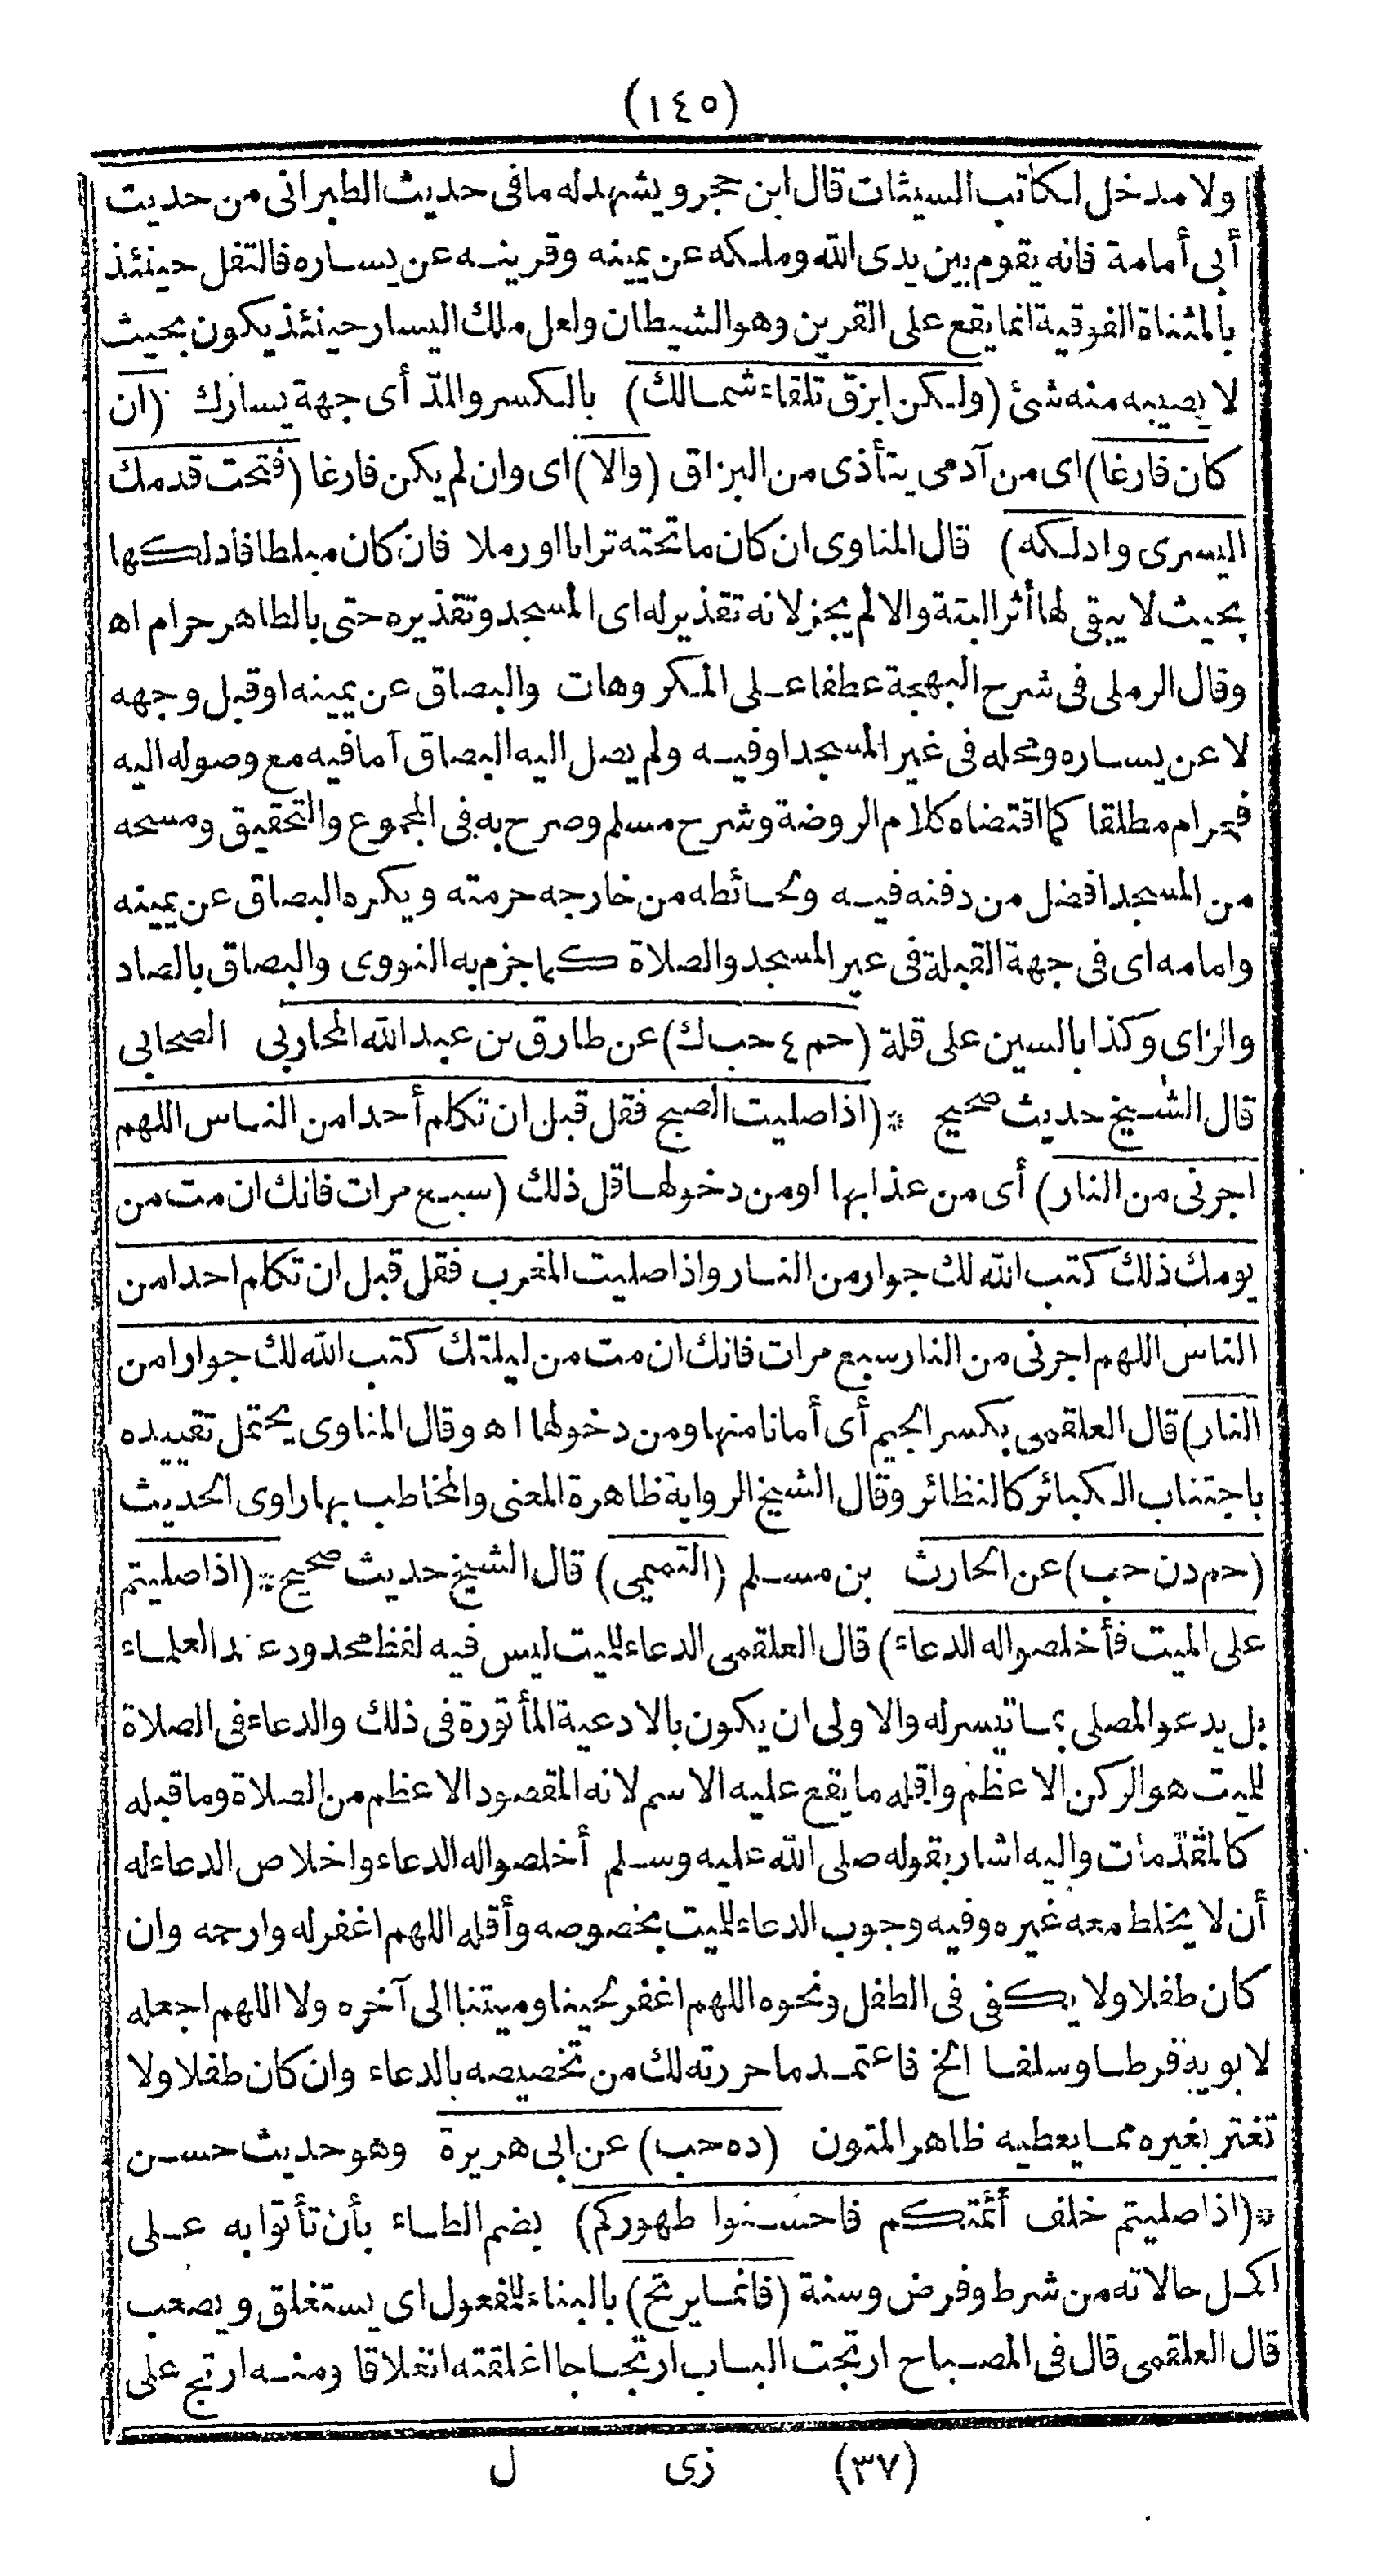 (١٤٥)
ولا مدخل لكاتب السيئات قال ابن حجر ويشهد له ما فى حديث الطبرانى من حديث
أبى أمامة فانه يقوم بين يدى الله وملكه عن يمينه وقرينه عن يساره فالتفل حينئذ
بالمثناة الفوقية انما يقع على القرين وهو الشيطان ولعل ملك اليسار حينئذ يكون بحيث
لا يصيبه منه شئ (ولكن ابزق تلقاء شمالك) بالكسر والمدّ أى جهة يسارك (ان
كان فارغا) اى من آدمى يتأذى من البزاق (والا) اى وان لم يكن فارغا (فتحت قدمك
اليسرى وادلكه) قال المناوى ان كان ما تحته ترابا او رملا فان كان مبلطا فادلكها
بحيث لا يبقى لها أثر البتة والا لم يجز لانه تقذير له اى المسجد وتقذيره حتى بالطاهر حرام اه
وقال الرملى فى شرح البهجة عطفا على المكروهات والبصاق عن يمينه او قبل وجهه
لا عن يساره ومحله فى غير المسجد او فيه ولم يصل اليه البصاق أما فيه مع وصوله اليه
فحرام مطلقا كما اقتضاه كلام الروضة وشرح مسلم وصرح به فى المجموع والتحقيق ومسحه
من المسجد افضل من دفنه فيه ولحائطه من خارجه حرمته ويكره البصاق عن يمينه
وامامه اى فى جهة القبلة فى غير المسجد والصلاة كما جزم به النووى والبصاق بالصاد
والزاى وكذا بالسين على قلة (حم ٤ حب ك) عن طارق بن عبد الله المحاربى الصحابى
قال الشيخ حديث صحيح * (اذا صليت الصبح فقل قبل ان تكلم أحدا من الناس اللهم
اجرنى من النار) أى من عذابها او من دخولها قل ذلك (سبع مرات فانك ان مت من
يومك ذلك كتب الله لك جوار من النار واذا صليت المغرب فقل قبل ان تكلم احدا من
الناس اللهم اجرنى من النار سبع مرات فانك ان مت من ليلتك كتب الله لك جوارا من
النار) قال العلقمى بكسر الجيم أى أمانا منها ومن دخولها اه وقال المناوى يحتمل تقييده
باجتناب الكبائر كالنظائر وقال الشيخ الرواية ظاهرة المعنى والمخاطب بها راوى الحديث
(حم د ن حب) عن الحارث بن مسلم (التميمى) قال الشيخ حديث صحيح * (اذا صليتم
على الميت فأخلصوا له الدعاء) قال العلقمى الدعاء للميت ليس فيه لفظ محدود عند العلماء
بل يدعو المصلى بما تيسر له والاولى ان يكون بالادعية المأثورة فى ذلك والدعاء فى الصلاة
للميت هو الركن الاعظم واقله ما يقع عليه الاسم لانه المقصود الاعظم من الصلاة وما قبله
كالمقدّمات واليه اشار بقوله صلى الله عليه وسلم أخلصوا له الدعاء واخلاص الدعاء له
أن لا يخلط معه غيره وفيه وجوب الدعاء للميت بخصوصه وأقله اللهم اغفر له وارحمه وان
كان طفلا ولا يكفى فى الطفل ونحوه اللهم اغفر لحينا وميتنا الى آخره ولا اللهم اجعله
لابويه فرطا وسلفا الخ فاعتمد ما حررته لك من تخصيصه بالدعاء وان كان طفلا ولا
تغتر بغيره مما يعطيه ظاهر المتون (د ه حب) عن ابى هريرة وهو حديث حسن
* (اذا صليتم خلف أئمتكم فاحسنوا طهوركم) بضم الطاء بأن تأتوا به على
اكمل حالاته من شرط وفرض وسنة (فانما يرتج) بالبناء للمفعول اى يستغلق ويصعب
قال العلقمى قال فى المصباح ارتجت الباب ارتجاجا اغلقته انغلاقا ومنه ارتج على
(٣٧) زى ل